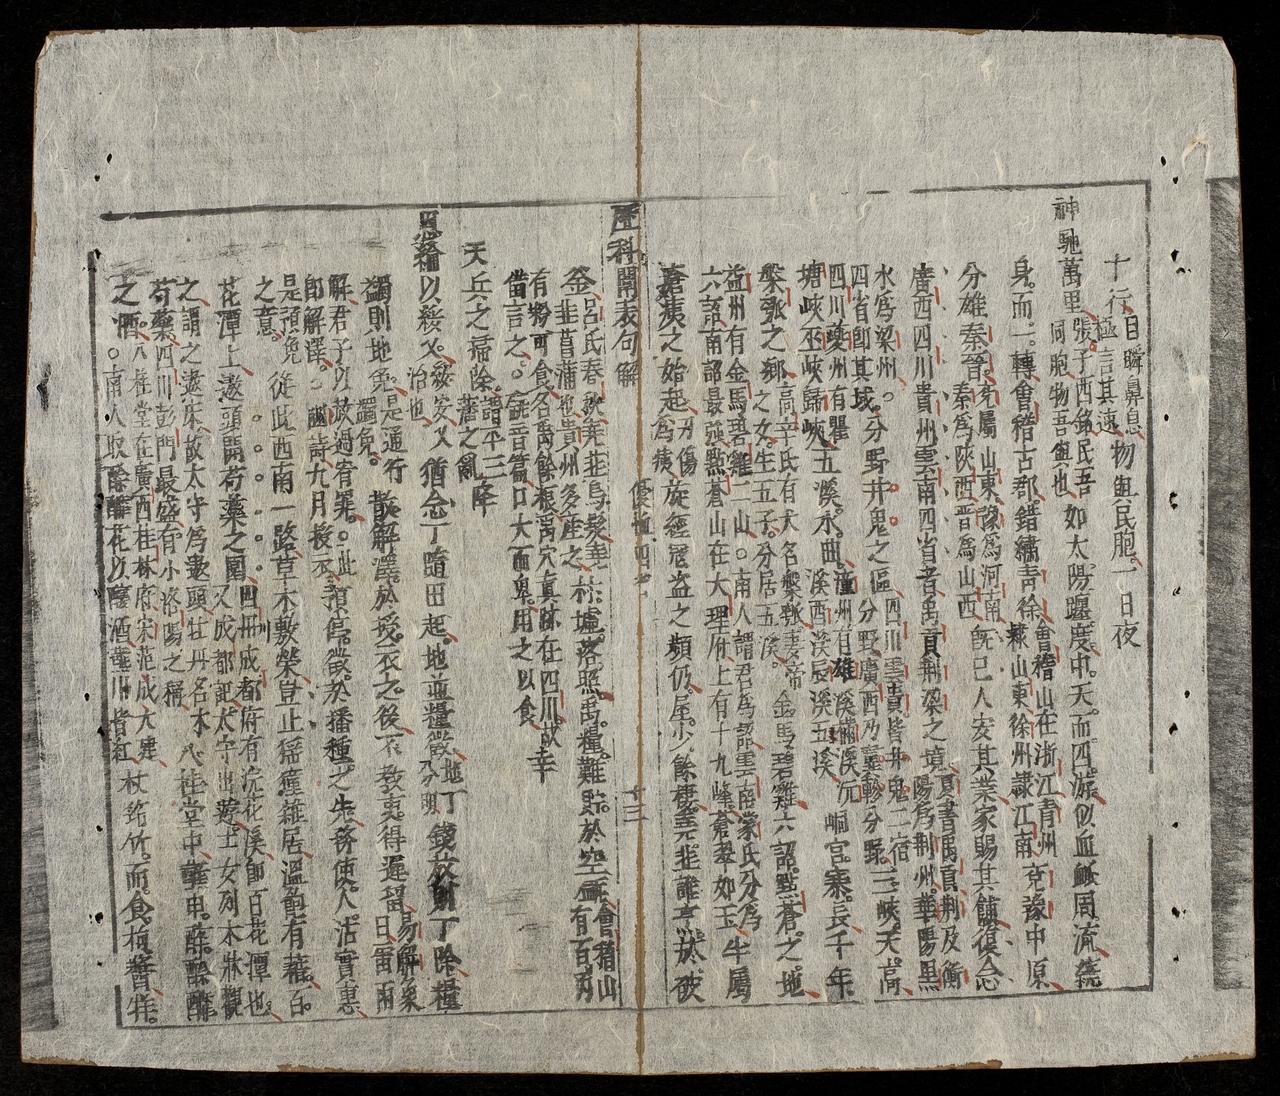 十行目瞬鼻息極言其速物與民胞一日夜
神馳萬里張子西銘民吾同胞物吾與也如太陽躔度中天而四游似血脈周流繞
身而一轉會稽古郡錯繡青徐會稽山在浙江青州隸山東徐州隸江南兗豫中原
分雄秦晉兗屬山東豫為河南秦為陝西晉為山西既已人安其業家賜其餔復念
廣西四川貴州雲南四省者禹貢荆梁之境夏書禹貢荆及衡陽為荆州華陽黑
水為梁州四省即其域分野井鬼之區四川雲貴皆井鬼二宿分野廣西乃翼軫分野三峽天高
四川夔州有瞿塘峽巫峽歸峽五溪水曲潼州有雄溪樠溪沅溪酉溪辰溪五溪峒官寨長千年
槃瓠之鄉高辛氏有犬名槃瓠妻帝之女生五子分居五溪金馬碧雞六詔點蒼之地
益州有金馬碧雞二山南人謂君為詔雲南蒙氏分為六詔南詔最強點蒼山在大理府上有十九峰蒼翠如玉牛屬
瘡痍之始起刀傷為痍旋經寇盜之頻仍屋少餘棲韭誰於破
歷科開表句解 十三
釜呂氏春秋菜韭昌蒲也貴州多產之於墟落照禹糧難貯於空甀會稽山有百
有物可食名禹餘根禹穴真跡在四川故幸
借言之甀音篇口大而卑用之以食
天兵之掃除譜平三藩之亂降
恩綸以綏乂綏安乂治也猶念丁隨田起地並糧徵地丁分明錢放則丁除糧
蠲則地免是通行蠲免散解澤於授衣之後不教吏得遲留易解象曰雷雨
解君子以赦過宥罪此即解澤豳詩九月授衣預停徵於播種之先務使人沾實惠
是預免之意從此西南一路草木敷榮豈止猺獞雜居溫飽有藉百
花潭上遨頭開芍藥之園四川成都府有浣花溪即百花潭也又成都記太守出遊士女列木牀觀
之謂之遨床故太守為遨頭牡丹名木芍藥四川彭門最盛有小洛陽之稱八桂堂中蘸甲蘇酴醾
之酒八桂堂在廣西桂林府宋范成大建南人取酴醾花以釀酒蘸川皆紅杖銘竹而食枸醬牂